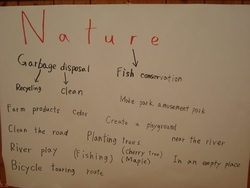 Nature
Garbage disposal
Fish conservation
Recycling clean
Make park amusement park
Farm products Cedar
Create a playground
Clean the road
Planting trees near the river
(Cherry tree)
River play (Fishing) (Maple) In an empty place
Bicycle touring route